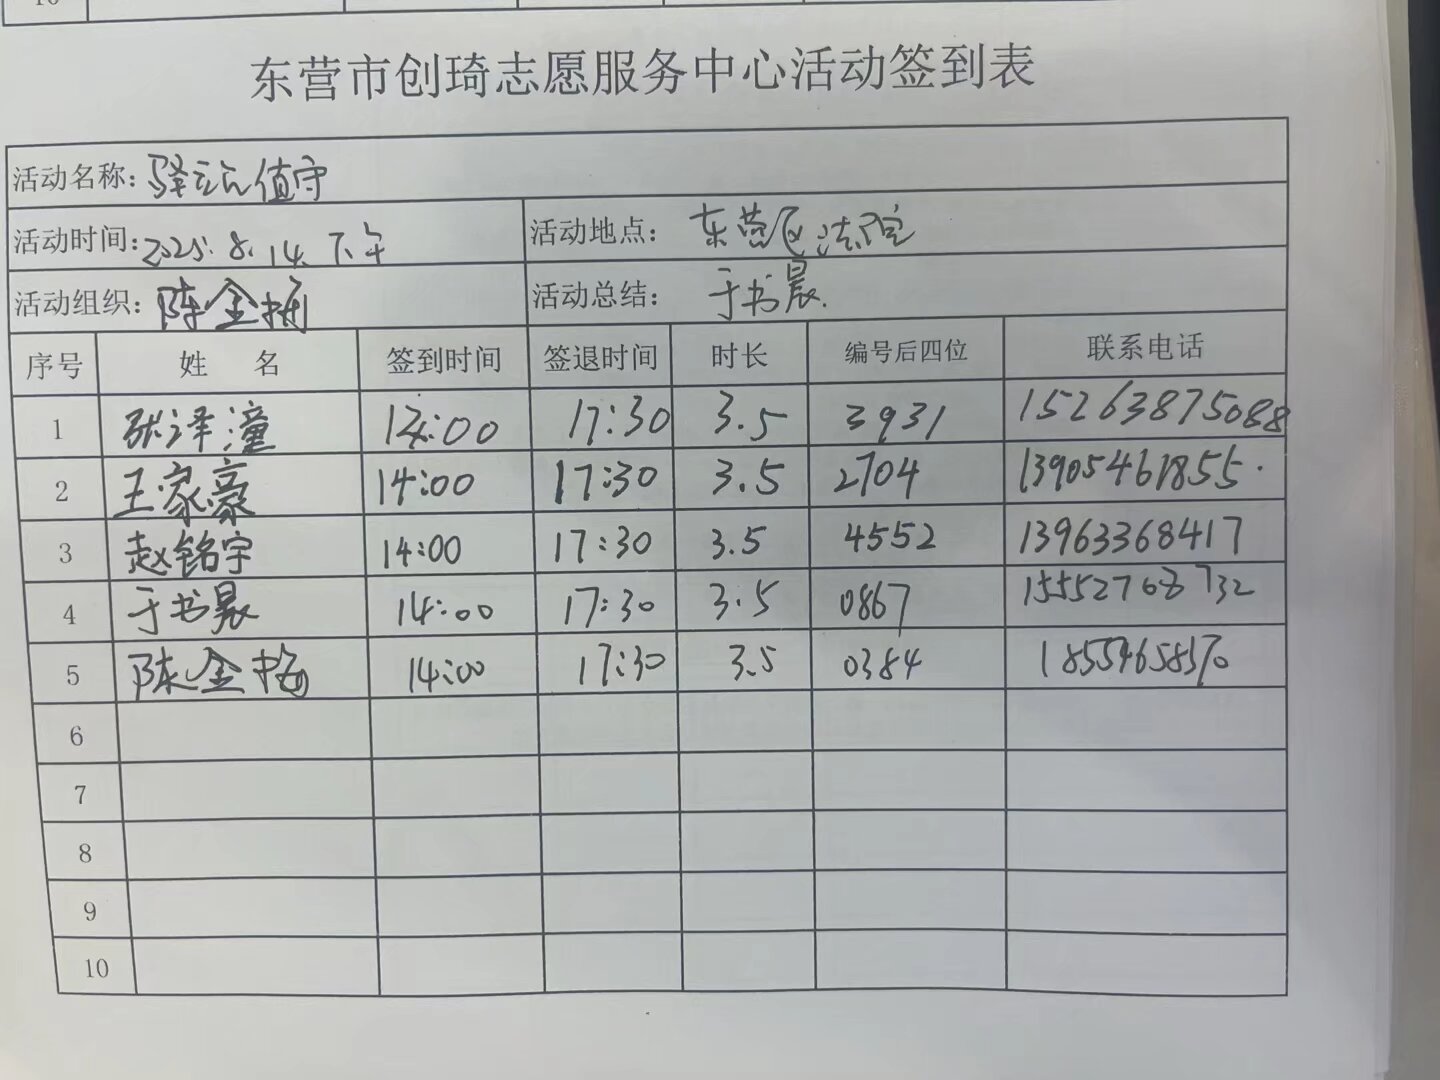 10
东营市创琦志愿服务中心活动签到表
活动名称: 驿站值守
活动时间: 2025.8.14.下午 活动地点: 东营区法院
活动组织: 陈金梅 活动总结: 于书晨.
序号 姓 名 签到时间 签退时间 时长 编号后四位 联系电话
1 张泽潼 14:00 17:30 3.5 3931 15263875088
2 王家豪 14:00 17:30 3.5 2704 13905461855.
3 赵铭宇 14:00 17:30 3.5 4552 13963368417
4 于书晨 14:00 17:30 3.5 0867 15552768732
5 陈金梅 14:00 17:30 3.5 0384
6
7
8
9
10